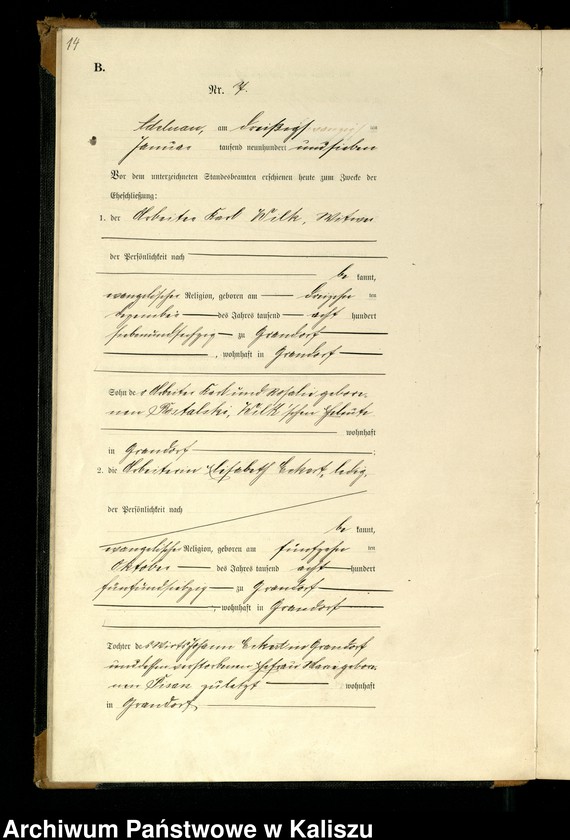 14
B.
Nr. 7.
Adelnau, am dreißigsten
Januar tausend neunhundert und sieben
Vor dem unterzeichneten Standesbeamten erschienen heute zum Zwecke der
Eheschließung:
1. der Arbeiter Karl Wilk, Witwer
der Persönlichkeit nach
be kannt,
evangelischer Religion, geboren am
Dezember des Jahres tausend acht hundert
siebenundsechzig zu Grandorf
, wohnhaft in Grandorf
Sohn des Arbeiter Karl und Rosalie gebore-
nen Wilk'schen Eheleute
wohnhaft
in Grandorf ;
2. die Arbeiterin Elisabeth Eckert, ledig,
der Persönlichkeit nach
be kannt,
evangelischer Religion, geboren am fünfzehn ten
Oktober des Jahres tausend acht hundert
fünfundsiebzig zu Grandorf
, wohnhaft in Grandorf
Tochter des Wirts Johann Eckert in Grandorf
und dessen verstorbenen Ehefrau gebore-
nen zuletzt wohnhaft
in Grandorf
Archiwum Państwowe w Kaliszu